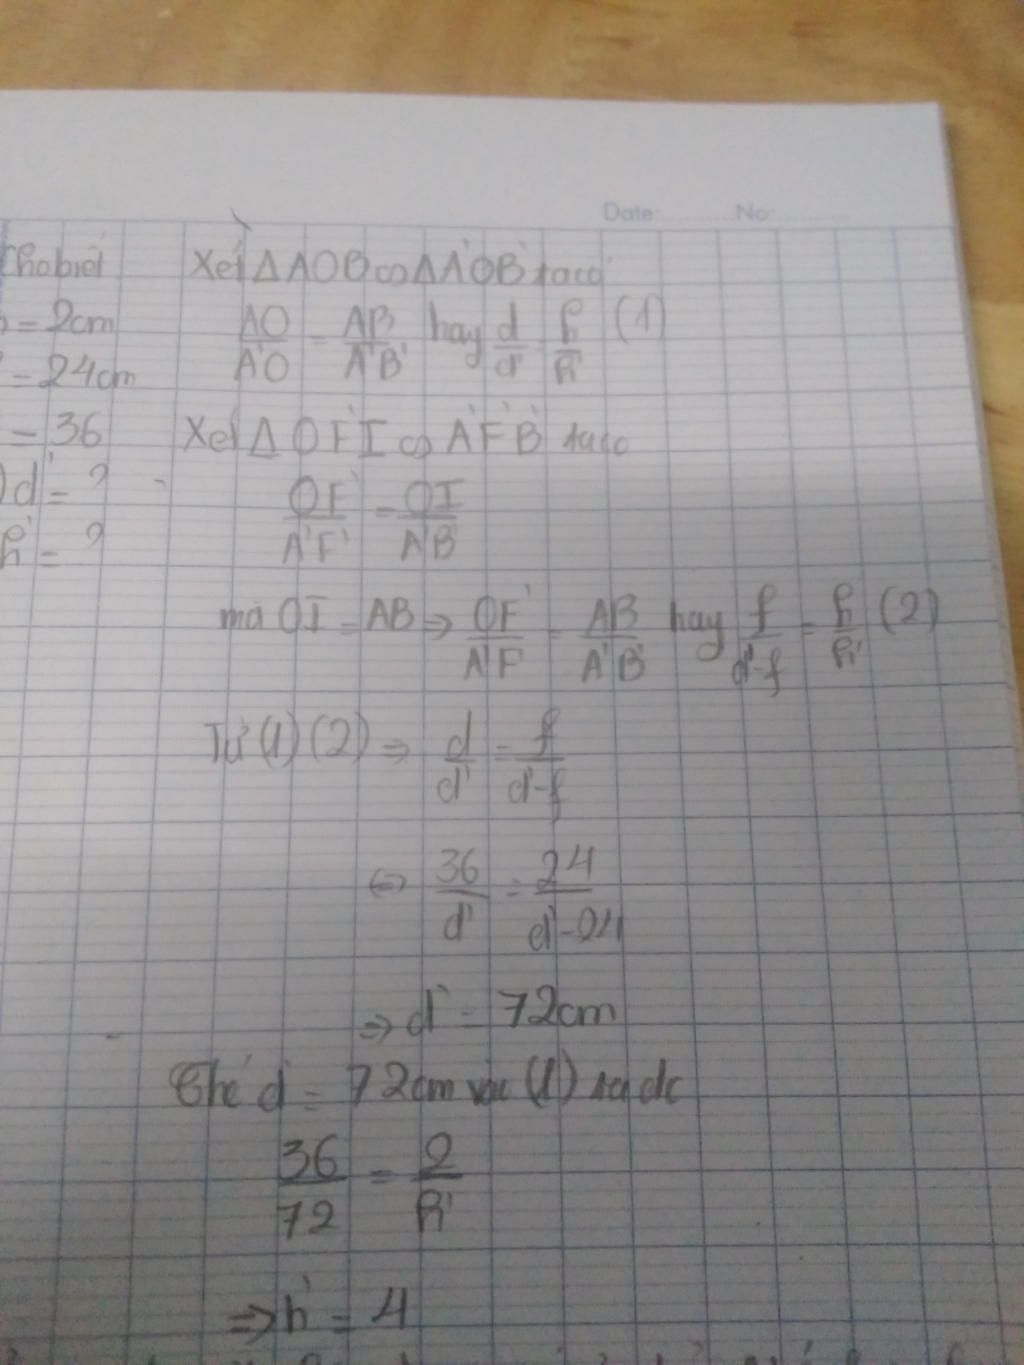 Date: No:
Cho biết
Xét ΔAOB ∽ ΔA'OB' ta có
h = 2cm
AO/A'O = AB/A'B' hay d/d' h/h' (1)
= 24cm
= 36
Xét Δ OF'I ∽ A'F'B' ta có
d' = ?
OF'/A'F' = OI/A'B'
h' = ?
mà OI = AB ⇒ OF'/A'F' = AB/A'B' hay f/d'-f = h/h' (2)
Từ (1) (2) ⇒ d/d' = f/d'-f
⇔ 36/d' = 24/d'-24
⇒ d' = 72cm
Thế d' = 72cm vào (1) ta đc
36/72 = 2/h'
⇒ h' = 4